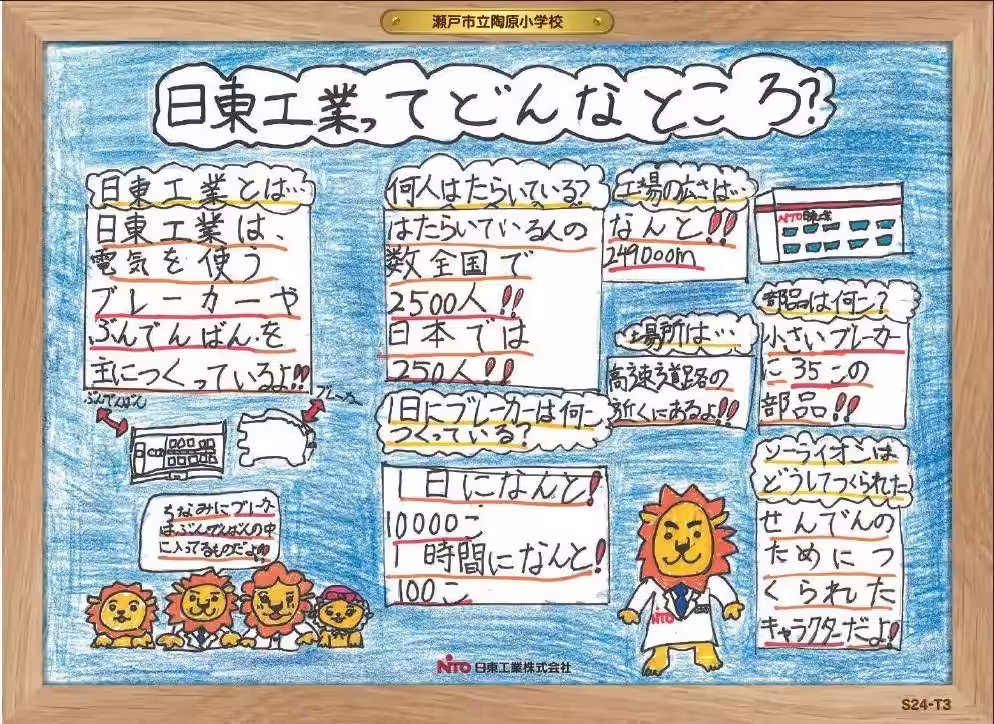 瀬戸市立陶原小学校
日東工業ってどんなところ?
日東工業とは…
日東工業は、
電気を使う
ブレーカーや
ぶんでんばんを
主につくっているよ!!
ぶんでんばん
ブレーカー
ちなみにブレーカー
はぶんでんばんの中
に入ってるものだよ!!
何人はたらいている?
はたらいている人の
数全国で
2500人!!
日本では
250人!!
1日にブレーカーは何こ
つくっている?
1日になんと!
10000こ
1時間になんと!
100こ
工場の広さは…
なんと!!
249000m
場所は…
高速道路の
近くにあるよ!!
NITO 日東工業
部品は何こ?
小さいブレーカー
に35この
部品!!
ソーライオンは
どうしてつくられた
せんでんの
ためにつ
くられた
キャラクターだよ!!
NITO
NITO 日東工業株式会社
S24-T3